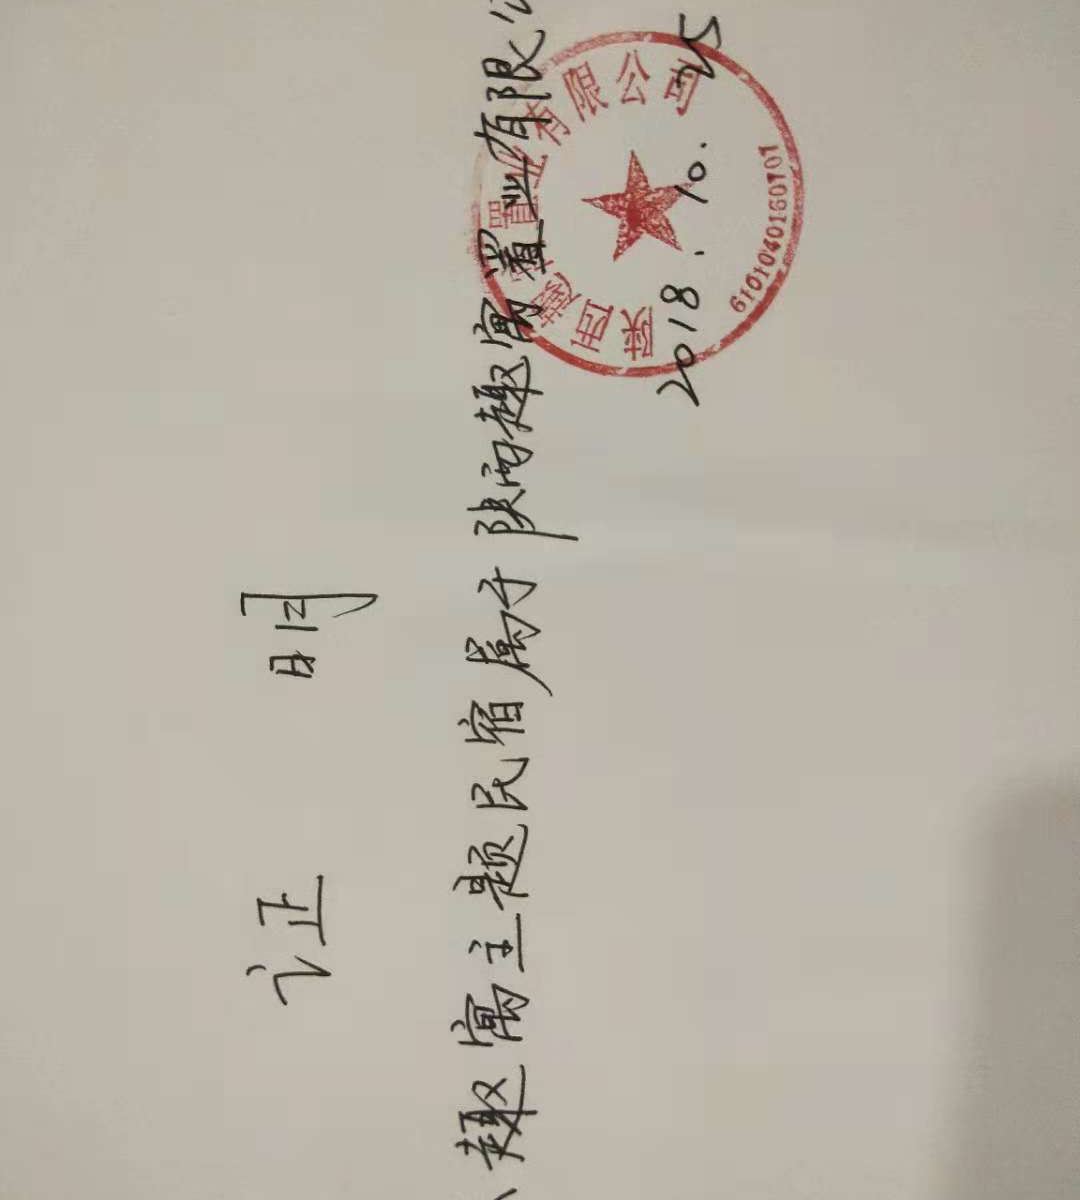 证 明
趣寓主题民宿属于陕西趣寓置业有限公
陕西趣寓置业有限公司
6101040160707
2018.10.25